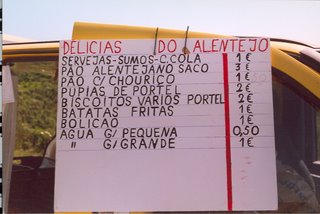 DELICIAS DO ALENTEJO
SERVEJAS-SUMOS-C.COLA 1€
PÃO ALENTEJANO SACO 3€
PÃO C/CHOURIÇO 1€50
PUPIAS DE PORTEL 2€
BISCOITOS VARIOS PORTEL 2€
BATATAS FRITAS 1€
BOLICAO 1€
AGUA G/PEQUENA 0,50
" G/GRANDE 1€